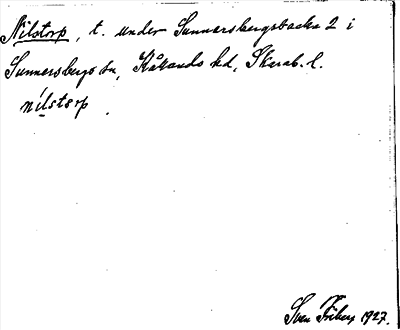 Nilstorp, t. under Sunnersbergsbacka 2 i
Sunnersbergs sn, Kållands hd, Skarab. l.
nilstorp.
Sven Friberg 1927.